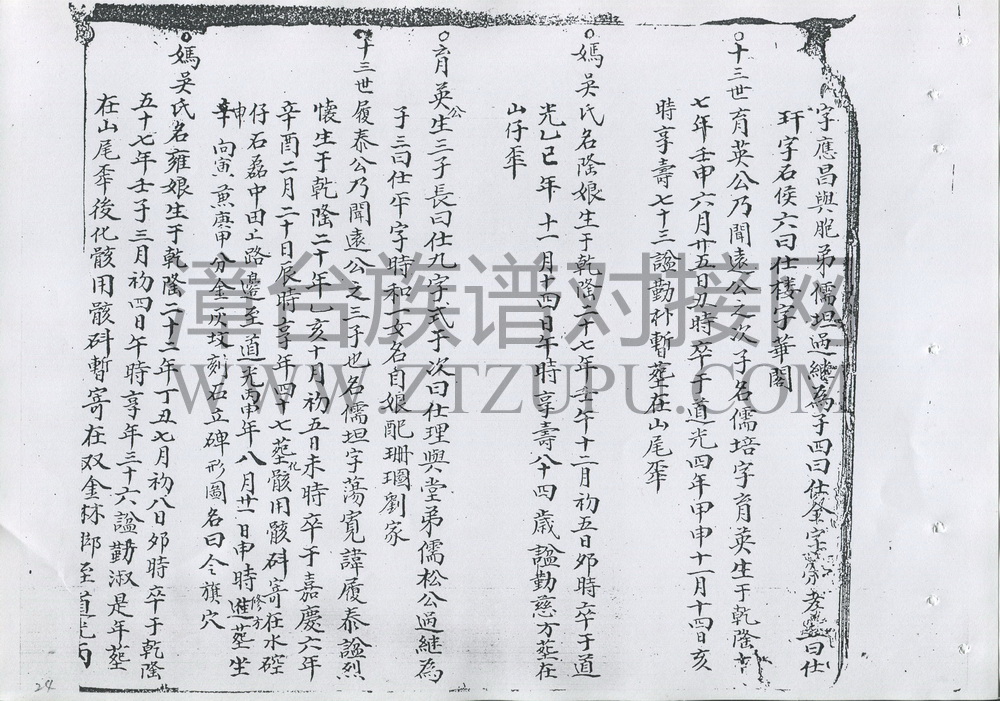 字應昌與胞弟儒坦過繼為子四曰仕 字 孝 曰仕
玕字石侯六曰仕樓字華閣
十三世育英公乃聞遠公之次子名儒培字育英生于乾隆
七年壬申六月廿五日丑時卒于道光四年甲申十一月十四日亥
時享壽七十三諡勤朴暫塟在山尾
媽吳氏名隆娘生于乾隆二十七年壬午十二月初五日夘時卒于道
光乙巳年十一月十四日午時享壽八十四歲諡勤慈方塟在
山仔
育英公生三子長曰仕九字式于次曰仕理與堂弟儒松公過継為
子三曰仕 字時和一女名自娘配珊瑚劉家
十三世履泰公乃聞遠公之三子也名儒坦字蕩寬諱履泰諡烈
懷生于乾隆二十年乙亥十月初五日未時卒于嘉慶六年
辛酉二月二十日辰時享年四十七塟化骸用骸 寄在水硿
仔石磊中田上路邊至道光丙申年八月廿一日申時進塟修方坐
申向寅兼庚甲分金灰坟刻石立碑形圖名曰令旗穴
媽吳氏名雍娘生于乾隆二十二年丁丑七月初八日夘時卒于乾隆
五十七年壬子三月初四日午時享年三十六諡勤淑是年塟
在山尾 後化骸用骸 暫寄在双金林 至道光丙
漳台族谱对接网
WWW.ZTZUPU.COM
24